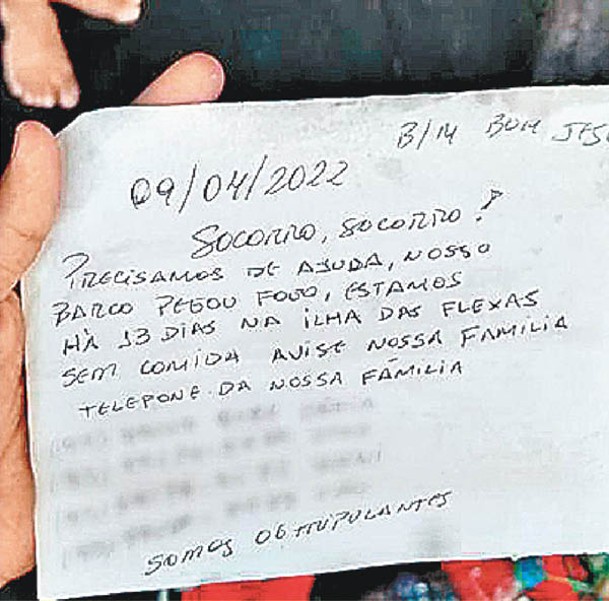 B/M BOM JES
09/04/2022
SOCORRO, SOCORRO!
PRECISAMOS DE AJUDA, NOSSO
BARCO PEGOU FOGO, ESTAMOS
HÁ 13 DIAS NA ILHA DAS FLEXAS
SEM COMIDA AVISE NOSSA FAMILIA
TELEPONE DA NOSSA FÁMILIA
SOMOS 06 TRIPULANTES